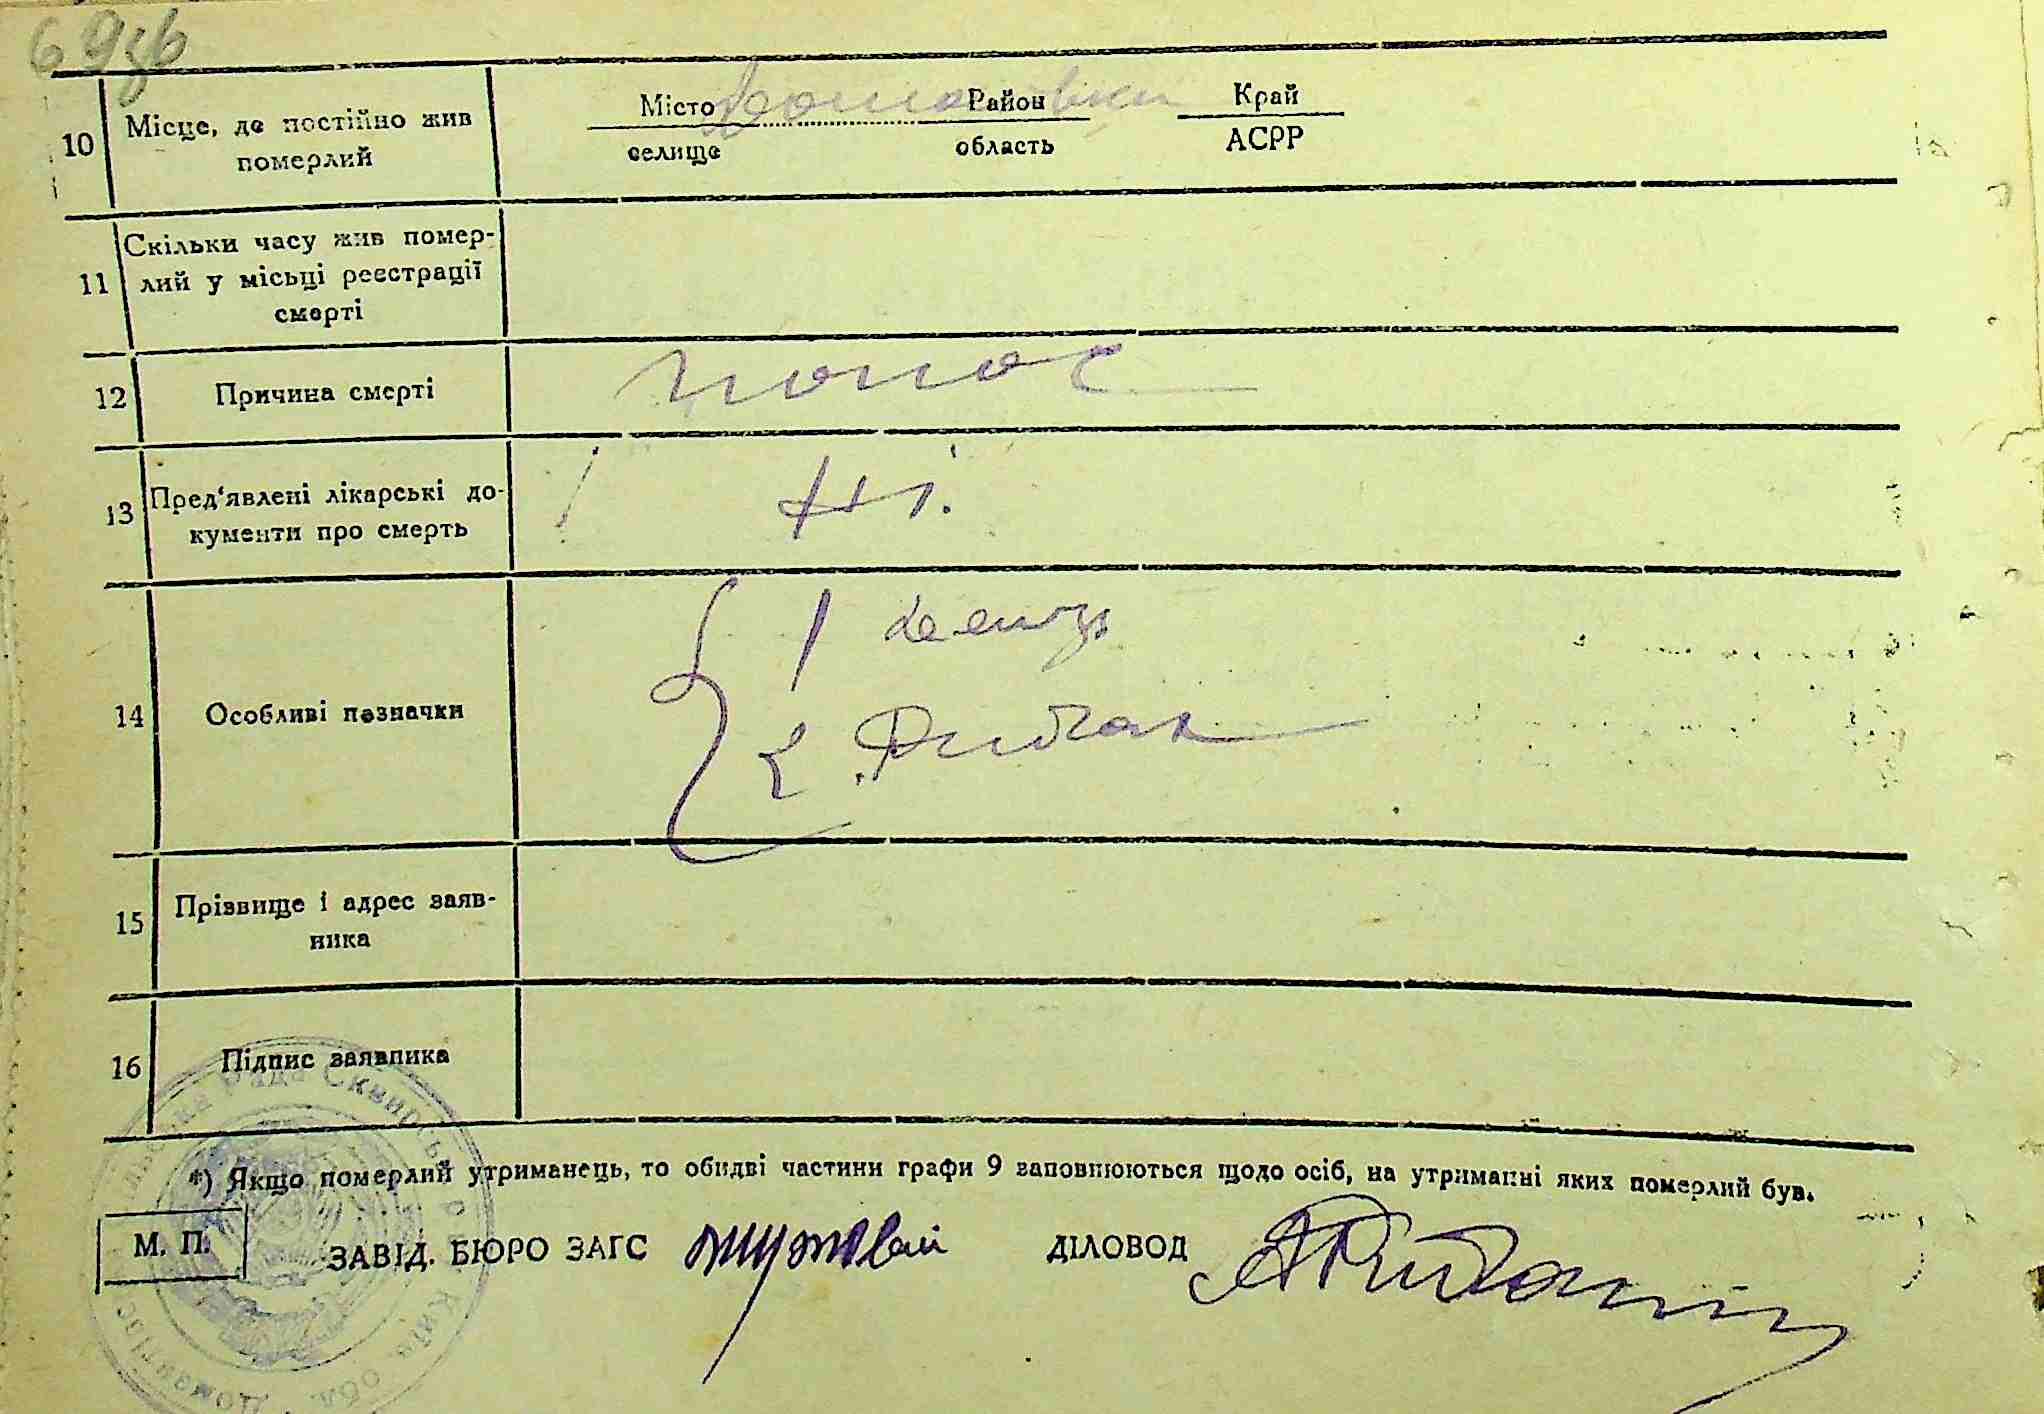 69зв
10
Місце, де постійно жив
померлий
Місто
Район
Край
селище
область
АСРР
11
Скільки часу жив помер-
лий у місьці реєстрації
смерті
12
Причина смерті
понос
13
Пред'явлені лікарські до-
кументи про смерть
Ні.
14
Особливі позначки
1
2
15
Прізвище і адрес заяв-
ника
16
Підпис заявника
*) Якщо померлий утриманець, то обидві частини графи 9 заповнюються щодо осіб, на утриманні яких померлий був.
М. П.
ЗАВІД. БЮРО ЗАГС
ДІЛОВОД
Рада Сквирськ
Київ обл.